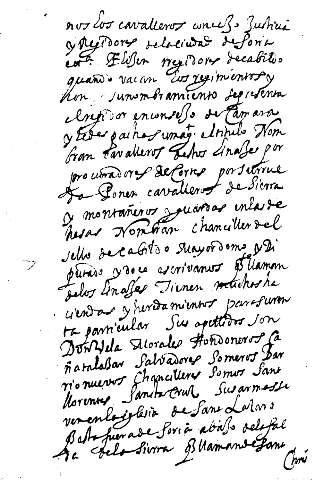 nos los cavalleros concejo Justicia
y Regidores de la ciudad de Soria
Elijen regidores de cavildo
quando vacan los regimientos y
con su nombramiento se presenta
el regidor en consejo de Camara
y se despacha su mag el titulo Nom
bran cavalleros destos linajes por
procuradores de Cortes por su
da Ponen cavalleros de Sierra
y montañeros y guardas en las de
hesas Nombran chanciller del
sello de Cabildo Mayordomo y Di
putado y doce escrivanos q llaman
de los linajes Tienen muchas ha
ciendas y heredamientos para su ren
ta particular Sus apellidos son
Don Vela Morales Hondoneros Ca
ñatalabar Salvadores Someros Bar
rionuevos Chancilleres Somos Sant
llorentes Sancta Cruz Sus armas se
ven en la iglesia de Sant Lazaro
Basta fuera de Soria abajo de la fal
da de la Sierra q llaman de Sant
Chris